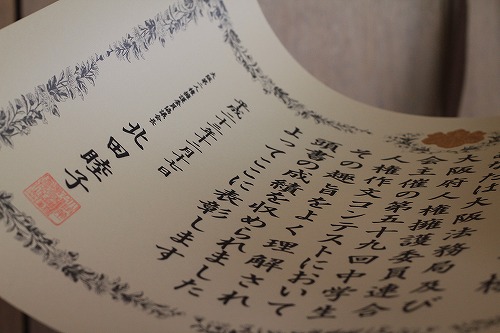 なたは大阪法務局及び
大阪府人権擁護委員連合
会主催の第五十九回中学生
人権作文コンテストにおいて
その趣旨をよく理解され
頭書の成績を収められました
よってここに表彰します
平成二十三年
北田睦子